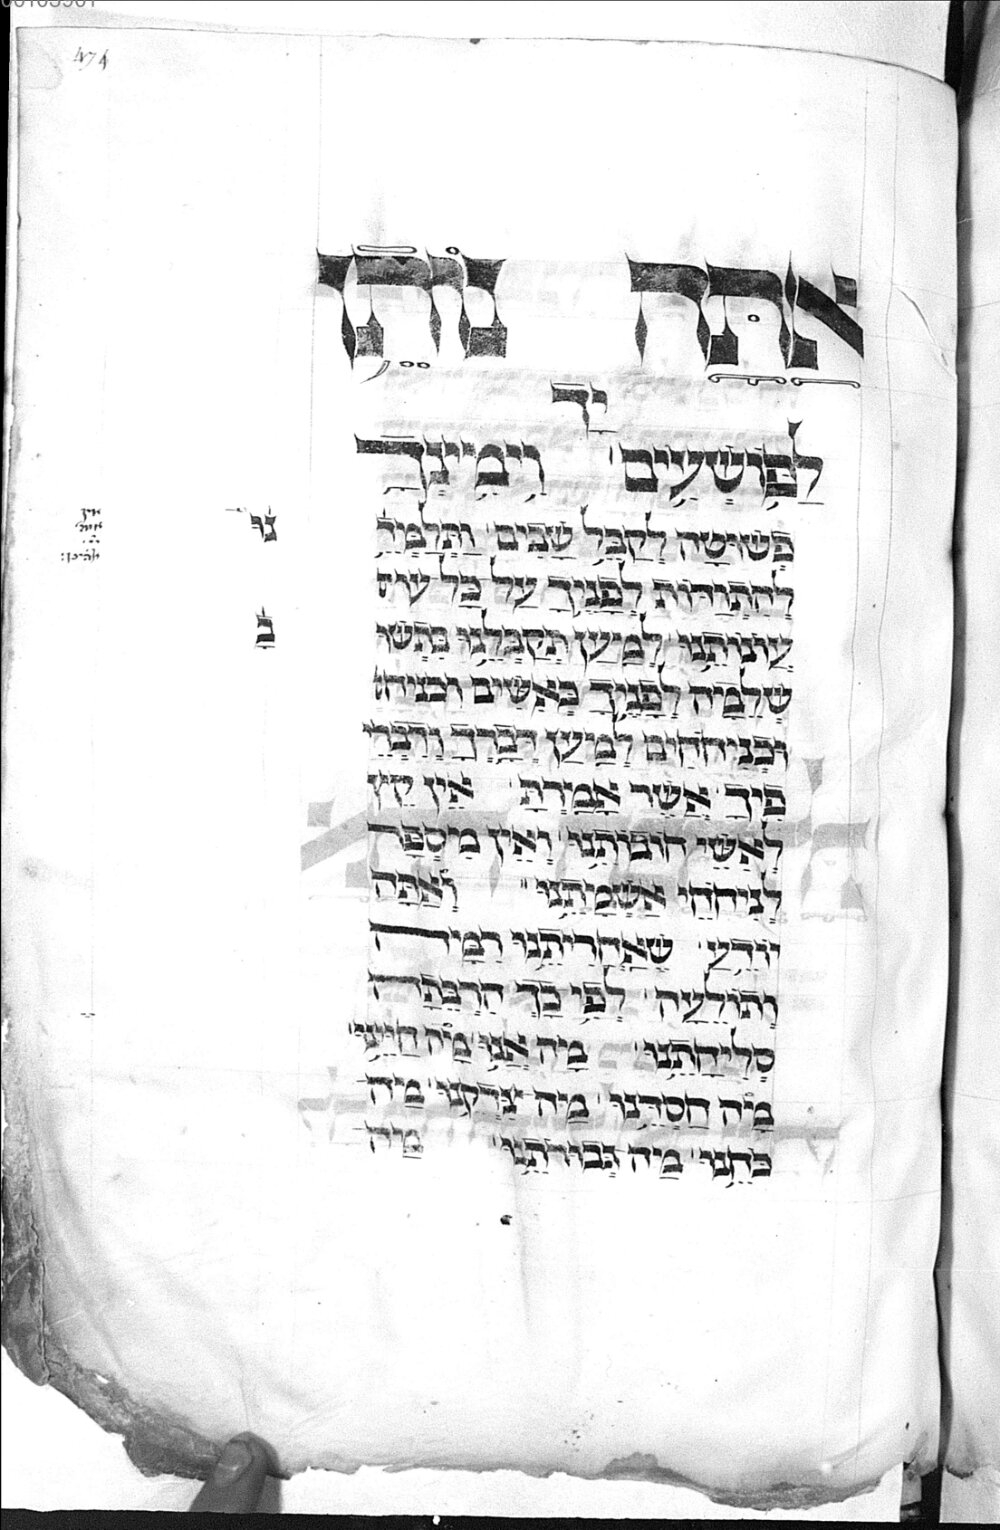 474
אתה נותן
יד
לפושעים וימינך
פשוטה לקבל שבים ותלמדנו
להתודות לפניך על כל עונ
עונותנו למען תקבלנו בתשו
שלמה לפניך כאשים וכניחו
וכניחחים למען דברך ודברי
פיך אשר אמרת אין קץ
לאשי חובותנו ואין מספר
לניחחי אשמתנו ואתה
יודע שאחריתנו רמה
ותולעה לפי כך הרבתה
סליחתנו מה אנו מה חיינו
מה חסדנו מה צדקנו מה
כחנו מה גבורתנו מה
נו
ב